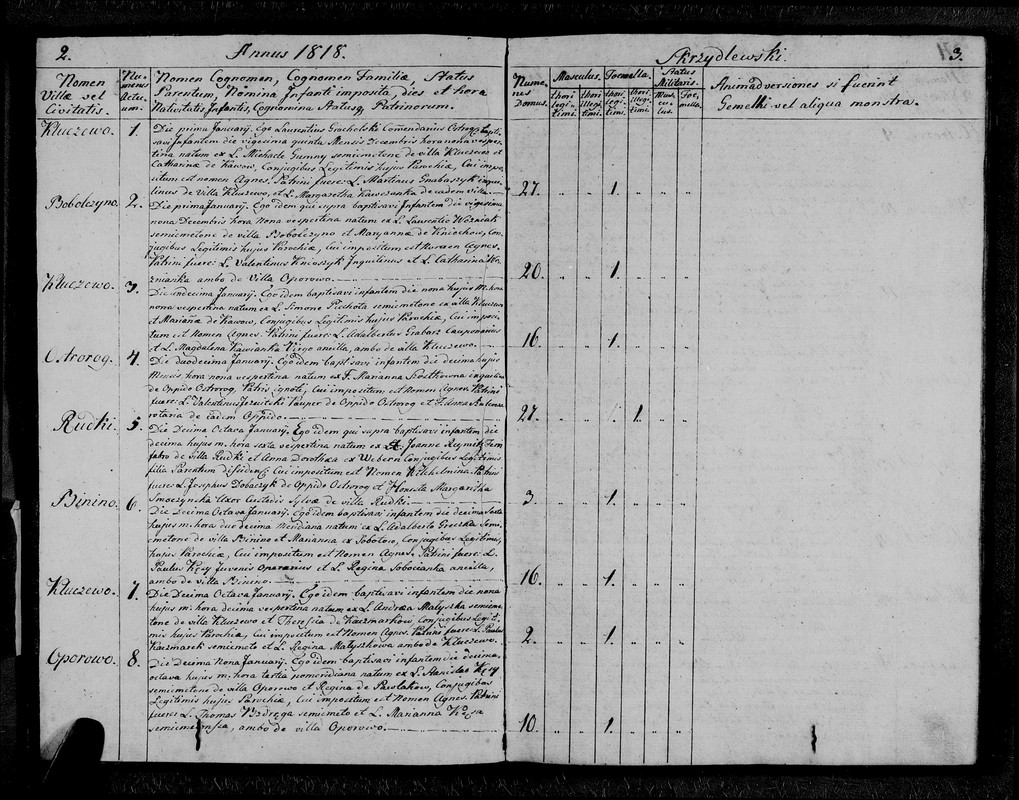 2.
Annus 1818.
Skrzydlewski.
3.
Nomen
Villæ vel
Civitatis.
Nu-
merus
Actu-
um.
Nomen Cognomen, Cognomen Familiæ, Status
Parentum, Nomina Infanti imposita, dies et hora
Nativitatis Infantis, Cognomina Statusq. Patrinorum.
Nume-
rus
Domus.
Masculus.
Foemella.
Status
Militaris.
thori
legi-
timi.
thori
illegi-
timi.
thori
legi-
timi.
thori
illegi-
timi.
Mas-
cu-
lus.
Foe-
mella.
Animadversiones si fuerint
Gemelli vel aliqua monstra.
Kluczewo. 1.
Die prima Januarij. Ego Laurentius Grocholski Comendarius Ostrog. bapti-
savi Infantem die vigesima quinta Mensis Decembris hora nona vesper-
tina natum ex L. Michaele Gumny semicmetone de villa Kluczewo et
Catharina de Kawow, Conjugibus Legitimis hujus Parochiæ, Cui impo-
situm est nomen Agnes. Patrini fuere: L. Martinus Grabarszyk inqui-
linus de Villa Kluczewo, et L. Margaretha de eadem villa.
27. 1.
Bobolczyno. 2.
Die prima Januarij. Ego idem qui supra baptisavi Infantem die vigesima
nona Decembris hora nona vespertina natum ex L. Laurentio Wozniak
semicmetone de villa Bobolczyno et Maryanna de Kniochow, Con-
jugibus Legitimis hujus Parochiæ, Cui impositum est Nomen Agnes.
Patrini fuere: L. Valentinus Knioszyk Inquilinus et L. Catharina
ambo de Villa Oporowo.
20. 1.
Kluczewo. 3.
Die undecima Januarij. Ego idem baptisavi infantem die nona hujus m. hora
nona vespertina natum ex L. Simone Piechota semicmetone ex villa Kluczewo
et Marianna de Kawow, Conjugibus Legitimis hujus Parochiæ, Cui imposi-
tum est Nomen Agnes. Patrini fuere: L. Adalbertus Grabarz Cauponarius
et L. Magdalena Kawianka Virgo ancilla, ambo de villa Kluczewo.
16. 1.
Ostrorog. 4.
Die duodecima Januarij. Ego idem baptisavi infantem die decima hujus
Mensis hora nona vespertina natum ex F. Marianna inquilina
de Oppido Ostrorog, Patris ignoti, Cui impositum est Nomen Agnes. Patrini
fuere: L. Valentinus Pauper de Oppido Ostrorog et F. Anna
de eadem Oppido.
27. 1.
Rudki. 5.
Die Decima Octava Januarij. Ego idem qui supra baptisavi infantem die
decima hujus m. hora sexta vespertina natum ex Joanne
fabro de villa Rudki et Anna Dorothea ex Webern Conjugibus Legitimis
filia Parentum Cui impositum est Nomen Wilhelmina. Patrini
fuere: L. Josephus Dobaczyk de Oppido Ostrorog et Honesta Margaritha
Smoczynska Uxor Custodis Sylvæ de villa Rudki.
3. 1.
Binino. 6.
Die Decima Octava Januarij. Ego idem baptisavi infantem die decima sexta
hujus m. hora duodecima meridiana natum ex L. Adalberto Groszka Semi-
cmetone de villa Binino et Marianna ex Sobotow, Conjugibus Legitimis,
hujus Parochiæ, Cui impositum est Nomen Agnes. Patrini fuere: L.
Paulus Kęsy Juvenis Operarius et L. Regina Sobocianka ancilla,
ambo de villa Binino.
16. 1.
Kluczewo. 7.
Die Decima Octava Januarij. Ego idem baptisavi infantem die nona
hujus m. hora decima vespertina natum ex L. Andrea Matyska semicme-
tone de villa Kluczewo et Theressia de Kaczmarkow, Conjugibus Legiti-
mis hujus Parochiæ, Cui impositum est Nomen Agnes. Patrini fuere L. Paulus
Kaczmarek semicmeto et L. Regina Matyszkowa ambo de Kluczewo.
2. 1.
Oporowo. 8.
Die Decima Nona Januarij. Ego idem baptisavi infantem die decima-
octava hujus m. hora tertia pomeridiana natum ex L. Stanislao Kęsy
semicmetone de villa Oporowo et Regina de Pawlakow, Conjugibus
Legitimis hujus Parochiæ, Cui impositum est Nomen Agnes. Patrini
fuere: L. Thomas semicmeto et L. Marianna
ambo de villa Oporowo.
10. 1.